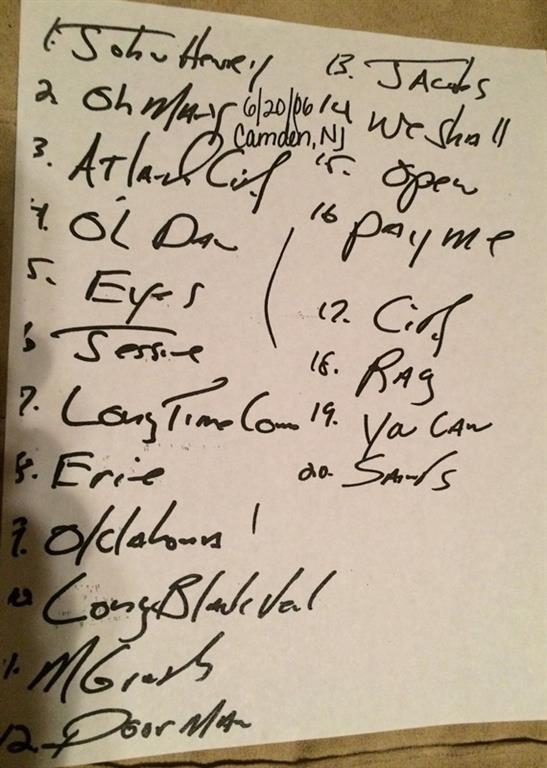 1. John Henry
2. Oh Mary
6/20/06
Camden, NJ
3. Atlantic City
4. Ol Dan
5. Eyes
6 Jessie
7. Long Time Com
8. Erie
9. Oklahoma
10 Long Black Veal
11. M Grands
12. Poor Man
13. Jacobs
14 We Shall
15. Open
16 Pay me
17. City
18. Rag
19. You Can
20. Saints